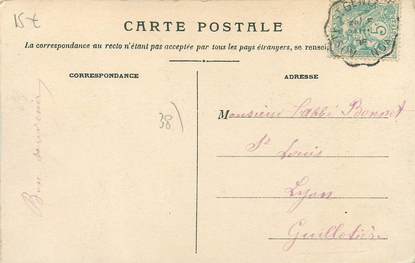 15€
CARTE POSTALE
La correspondance au recto n'étant pas acceptée par tous les pays étrangers, se rensei
CORRESPONDANCE
ADRESSE
Bon souvenir
38)
Monsieur l'abbé Bonnet
St Louis
Lyon
Guillotière
5